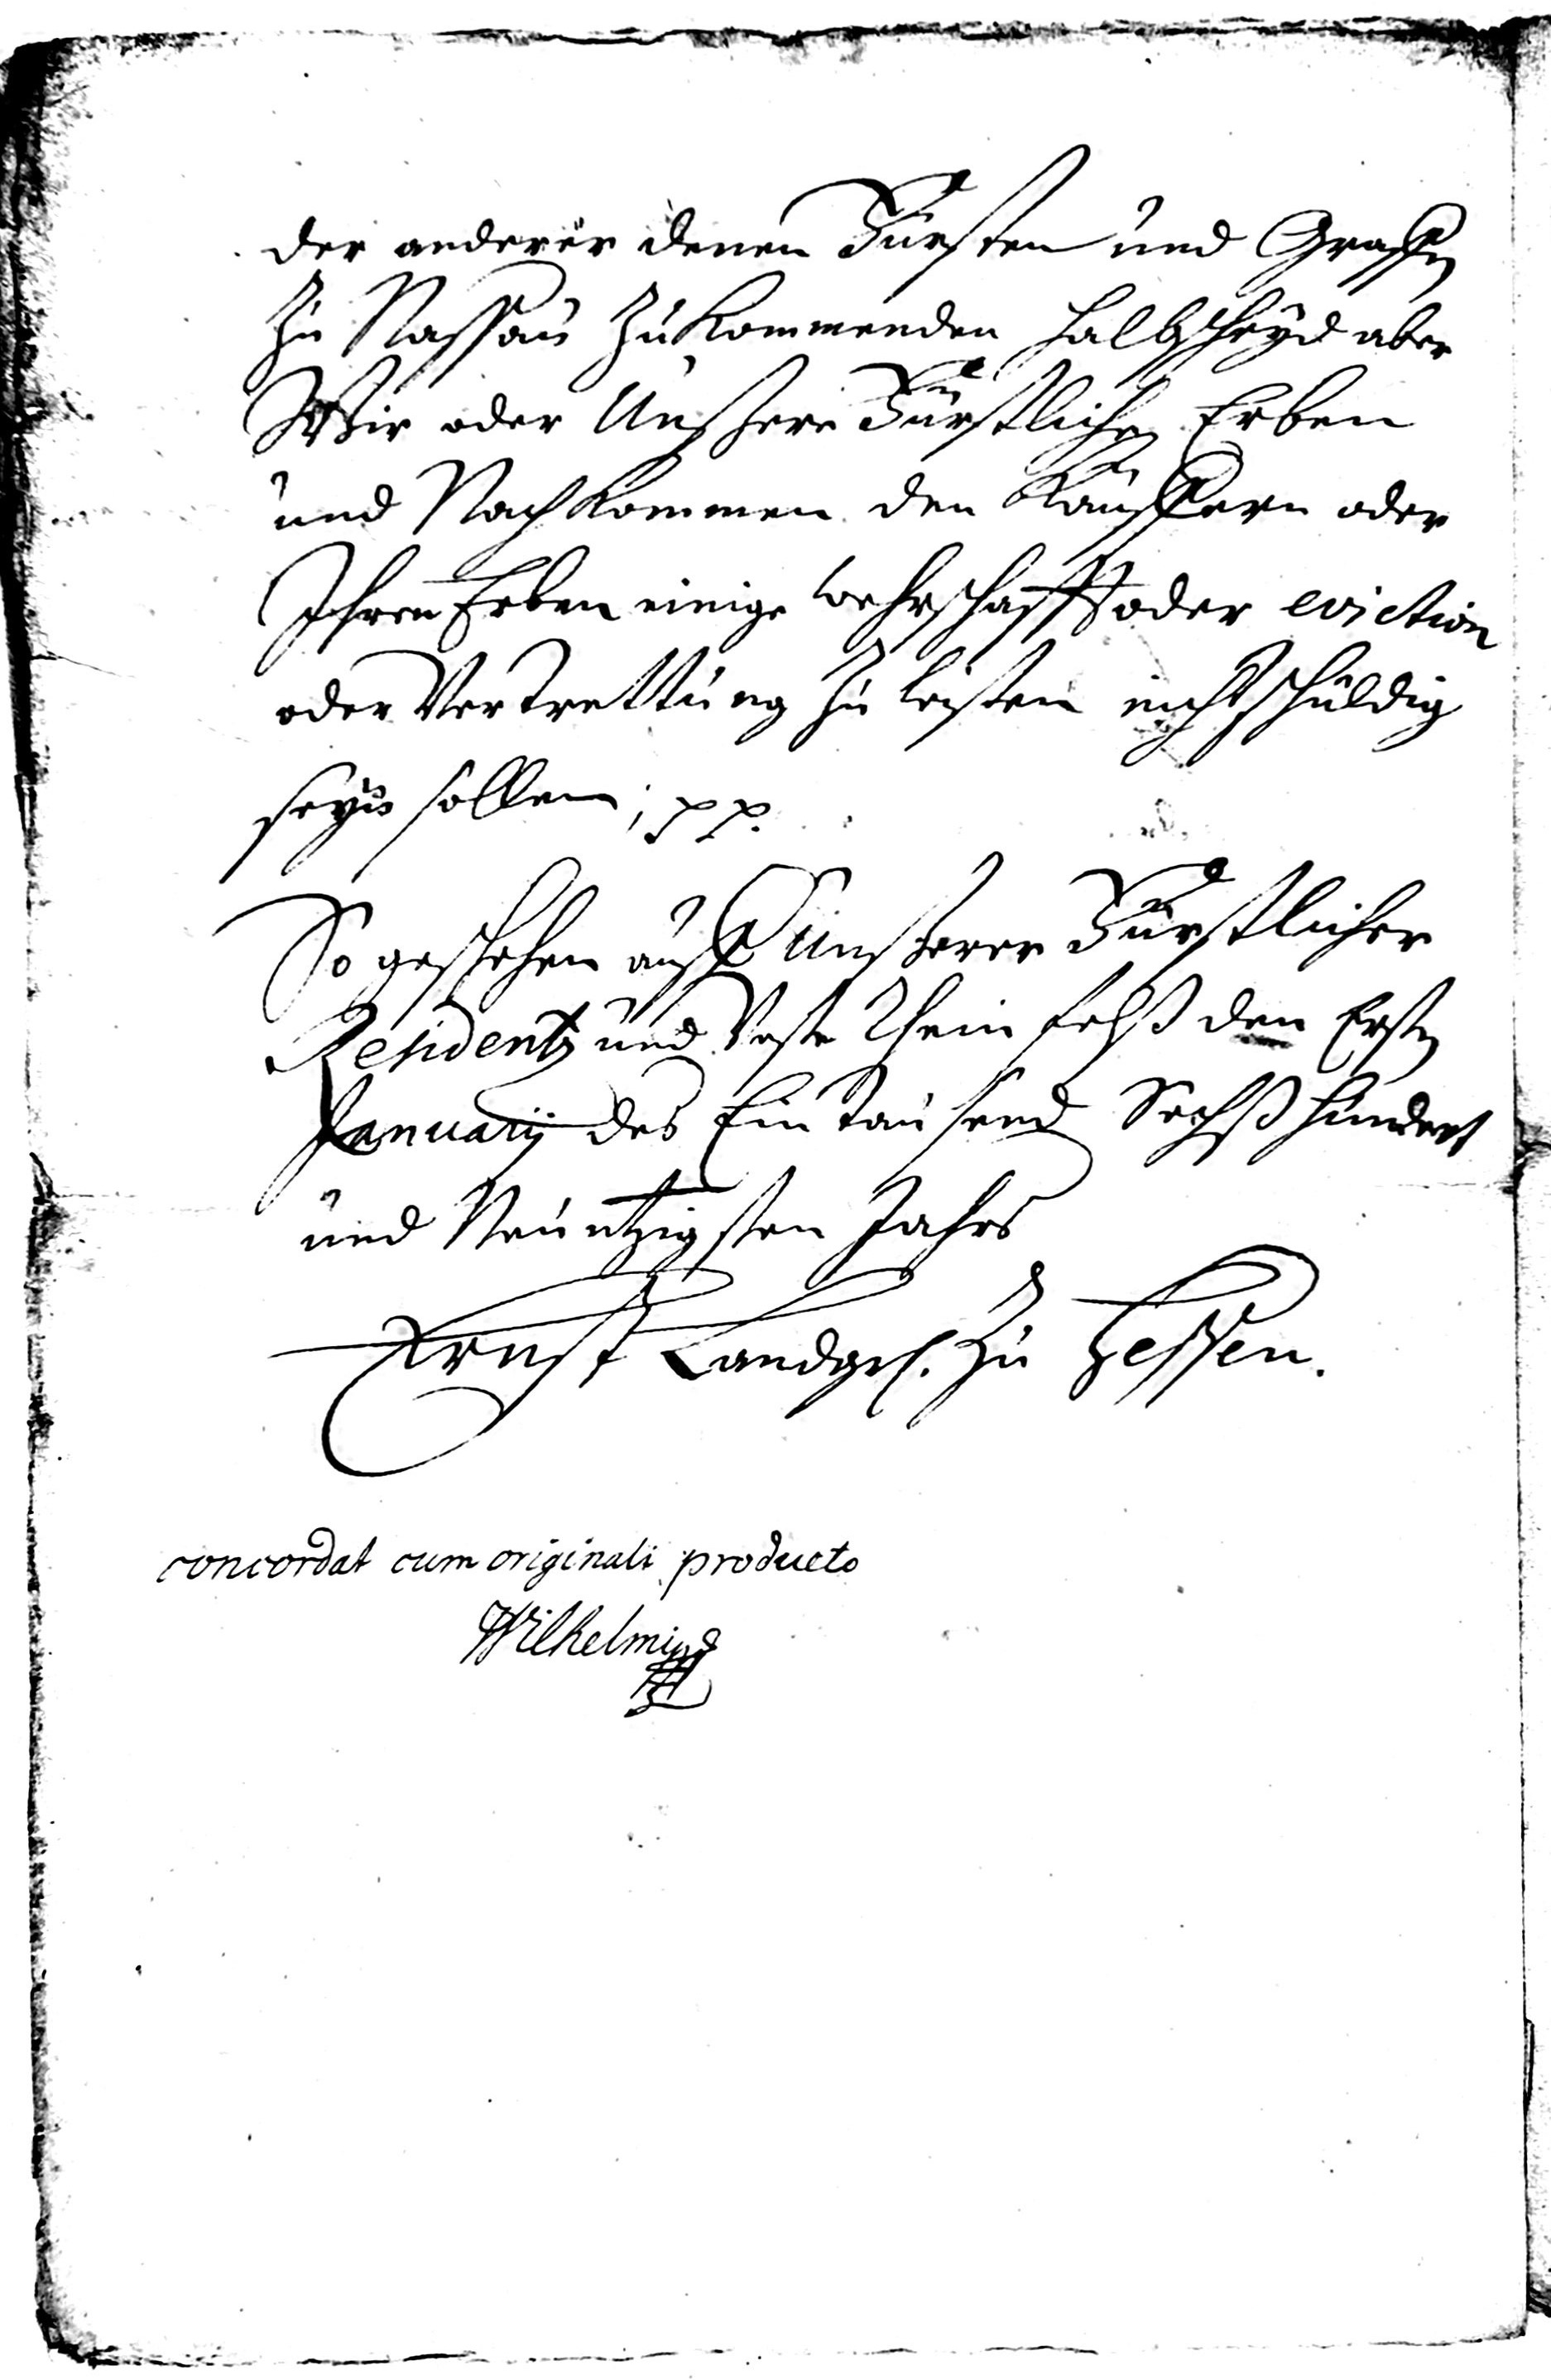 der anderer denen Fürsten und Graffen
zu Nassau zukommenden halbscheyd aber
Wir oder Unßere Fürstlichen Erben
und Nachkommen den Käuffern oder
Ihren Erben einige wehrschafft oder eviction
oder Vertrettung zu leisten nicht schuldig
seyn sollen; pp.
So geschehen auff Unßerer Fürstlicher
Residentz und Veste Rheinfelß den Ersten
January des Ein tausend Sechß hundert
und Neuntzigsten Jahrs
Ernst Landgrf. zu Hessen.
concordat cum originali producto
Wilhelmi